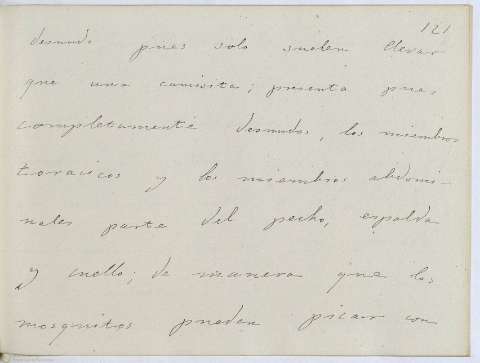 121
desnudo pues solo suelen llevar
que una camisita; presenta pues
completamente desnudos, los miembros
toraxicos y los miembros abdomi-
nales parte del pecho, espalda
y cuello; de manera que los
mosquitos pueden picar con